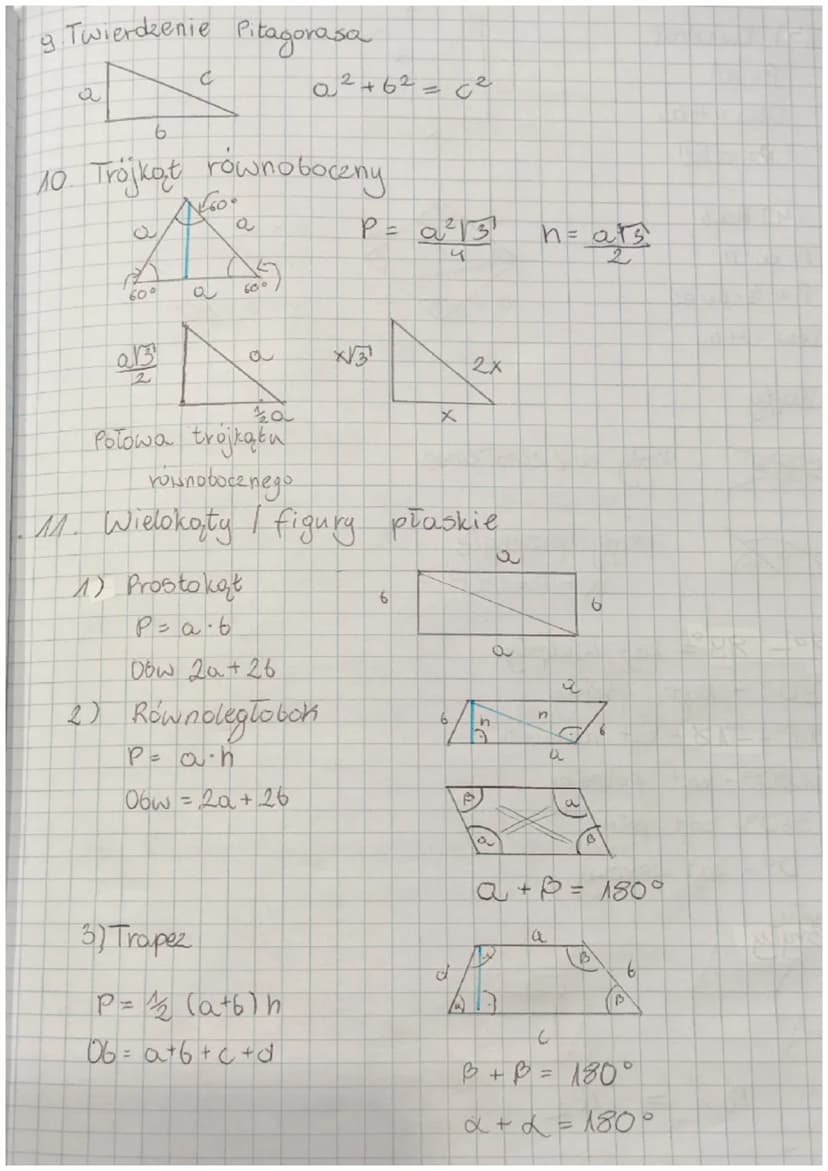 9. Twierdzenie Pitagorasa
a c b
a² + b² = c²
10. Trójkąt równoboczny
60° a a 60° a 60°
P = a²√3/4 h = a√3/2
a√3/2 a ½a
x√3 2x x
Połowa trójkątu
równobocznego
11. Wielokąty / figury płaskie
1) Prostokąt
a b b a
P = a · b
Obw 2a + 2b
2) Równoległobok
a b h h b a
P = a · h
Obw = 2a + 2b
β α α β
α + β = 180°
3) Trapez
a d β b β c
P = ½ (a+b) h
Ob = a+b+c+d
β + β = 180°
α + α = 180°